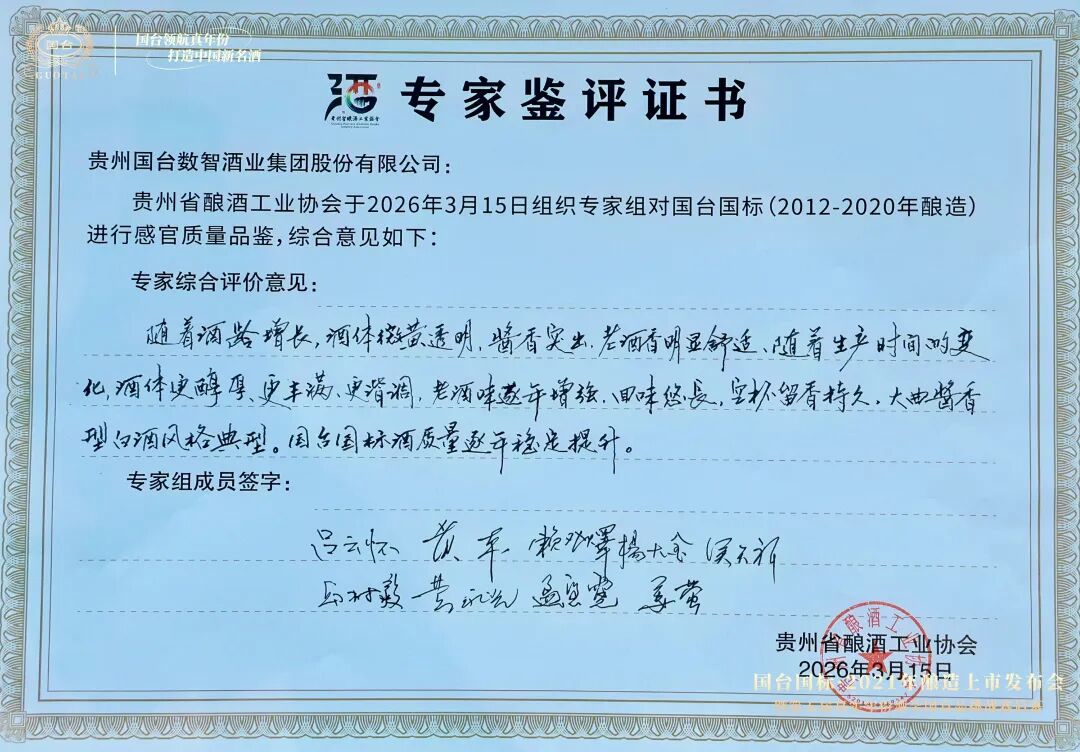 国台
GUOTAI
国台领航真年份
打造中国新名酒
贵州省酿酒工业协会
专家鉴评证书
贵州国台数智酒业集团股份有限公司：
贵州省酿酒工业协会于2026年3月15日组织专家组对国台国标（2012-2020年酿造）
进行感官质量品鉴，综合意见如下：
专家综合评价意见：
随着酒龄增长，酒体微黄透明、醬香突出、老酒香明显舒适、随着生产时间的变
化，酒体更醇厚、更丰满、更谐调，老酒味逐年增强、回味悠長，空杯留香持久，大曲醬香
型白酒风格典型。国台国标酒质量逐年稳定提升。
专家组成员签字：
吕云怀 黄平 赖登燡 楊大金 吴天祥
黄永光 孟望霓
贵州省酿酒工业协会
2026年3月15日
国台国标·2021年酿造上市发布会